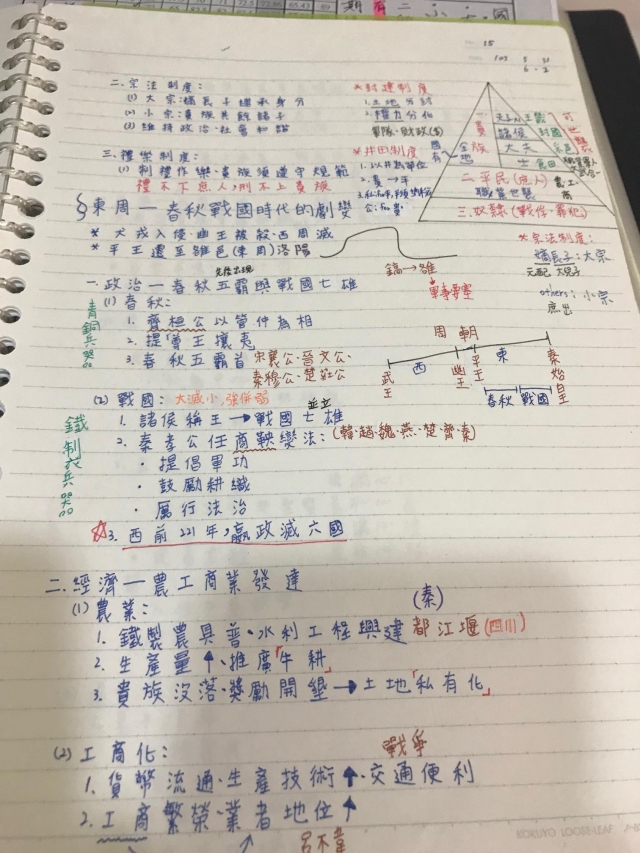 15
二.宗法制度:
(1) 大宗:嫡長子繼承身分
(2) 小宗:貴族其餘諸子
(3) 維持政治、社會和諧
三.禮樂制度:
(1) 制禮作樂、貴族須遵守規範
禮不下庶人,刑不上貴族
*封建制度
1.土地分封
2.權力分化
軍隊、財政(書)
*井田制度
1.以井為單位
諸侯
大夫
士
二.平民(庶人)
職業世襲
三.奴隸(戰俘、罪犯)
*宗法制度:
嫡長子:大宗
元配 大兒子
others:小宗
庶出
東周—春秋戰國時代的劇變
* 犬戎入侵、幽王被殺、西周滅
* 平王遷至雒邑(東周)洛陽
鎬→雒
軍事要塞
一.政治—春秋五霸與戰國七雄
青銅兵器
(1) 春秋:
1. 齊桓公以管仲為相
2. 提「尊王攘夷
3. 春秋五霸首 宋襄公、晉文公、
秦穆公、楚莊公
周朝
西 東
武王 幽王 平王 秦始皇
春秋 戰國
鐵制衣兵器
(2) 戰國: 大滅小,強併弱
並立
1. 諸侯稱王→戰國七雄
2. 秦孝公任商鞅變法:(韓、趙、魏、燕、楚、齊、秦)
· 提倡軍功
· 鼓勵耕織
· 厲行法治
☆3. 西前221年,嬴政滅六國
二.經濟—農工商業發達
(1) 農業:
(秦)
1. 鐵製農具普、水利工程興建 都江堰(四川)
2. 生產量↑、推廣「牛耕」
3. 貴族沒落、獎勵開墾→土地「私有化」
(2) 工商化:
戰爭
1. 貨幣流通、生產技術↑、交通便利
2. 工商繁榮、業者地位↑
呂不韋
KOKUYO LOOSE-LEAF